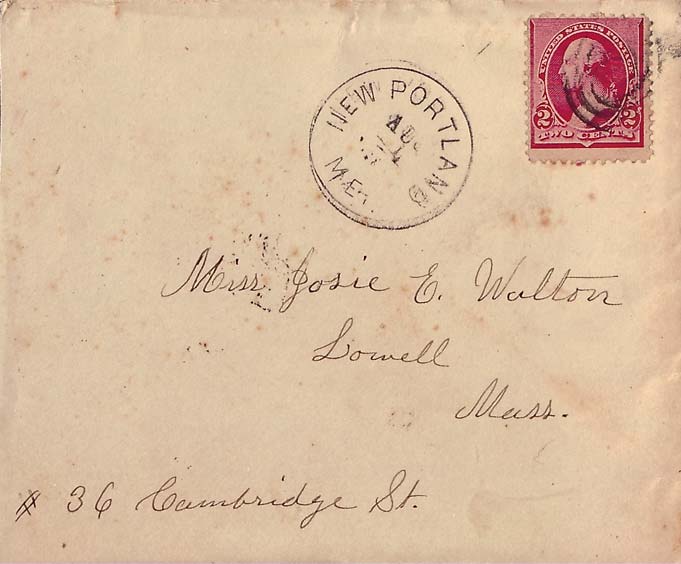 UNITED STATES POSTAGE
2 2
TWO CENTS
NEW PORTLAND
ME.
Miss Josie E. Walton
Lowell
Mass.
# 36 Cambridge St.